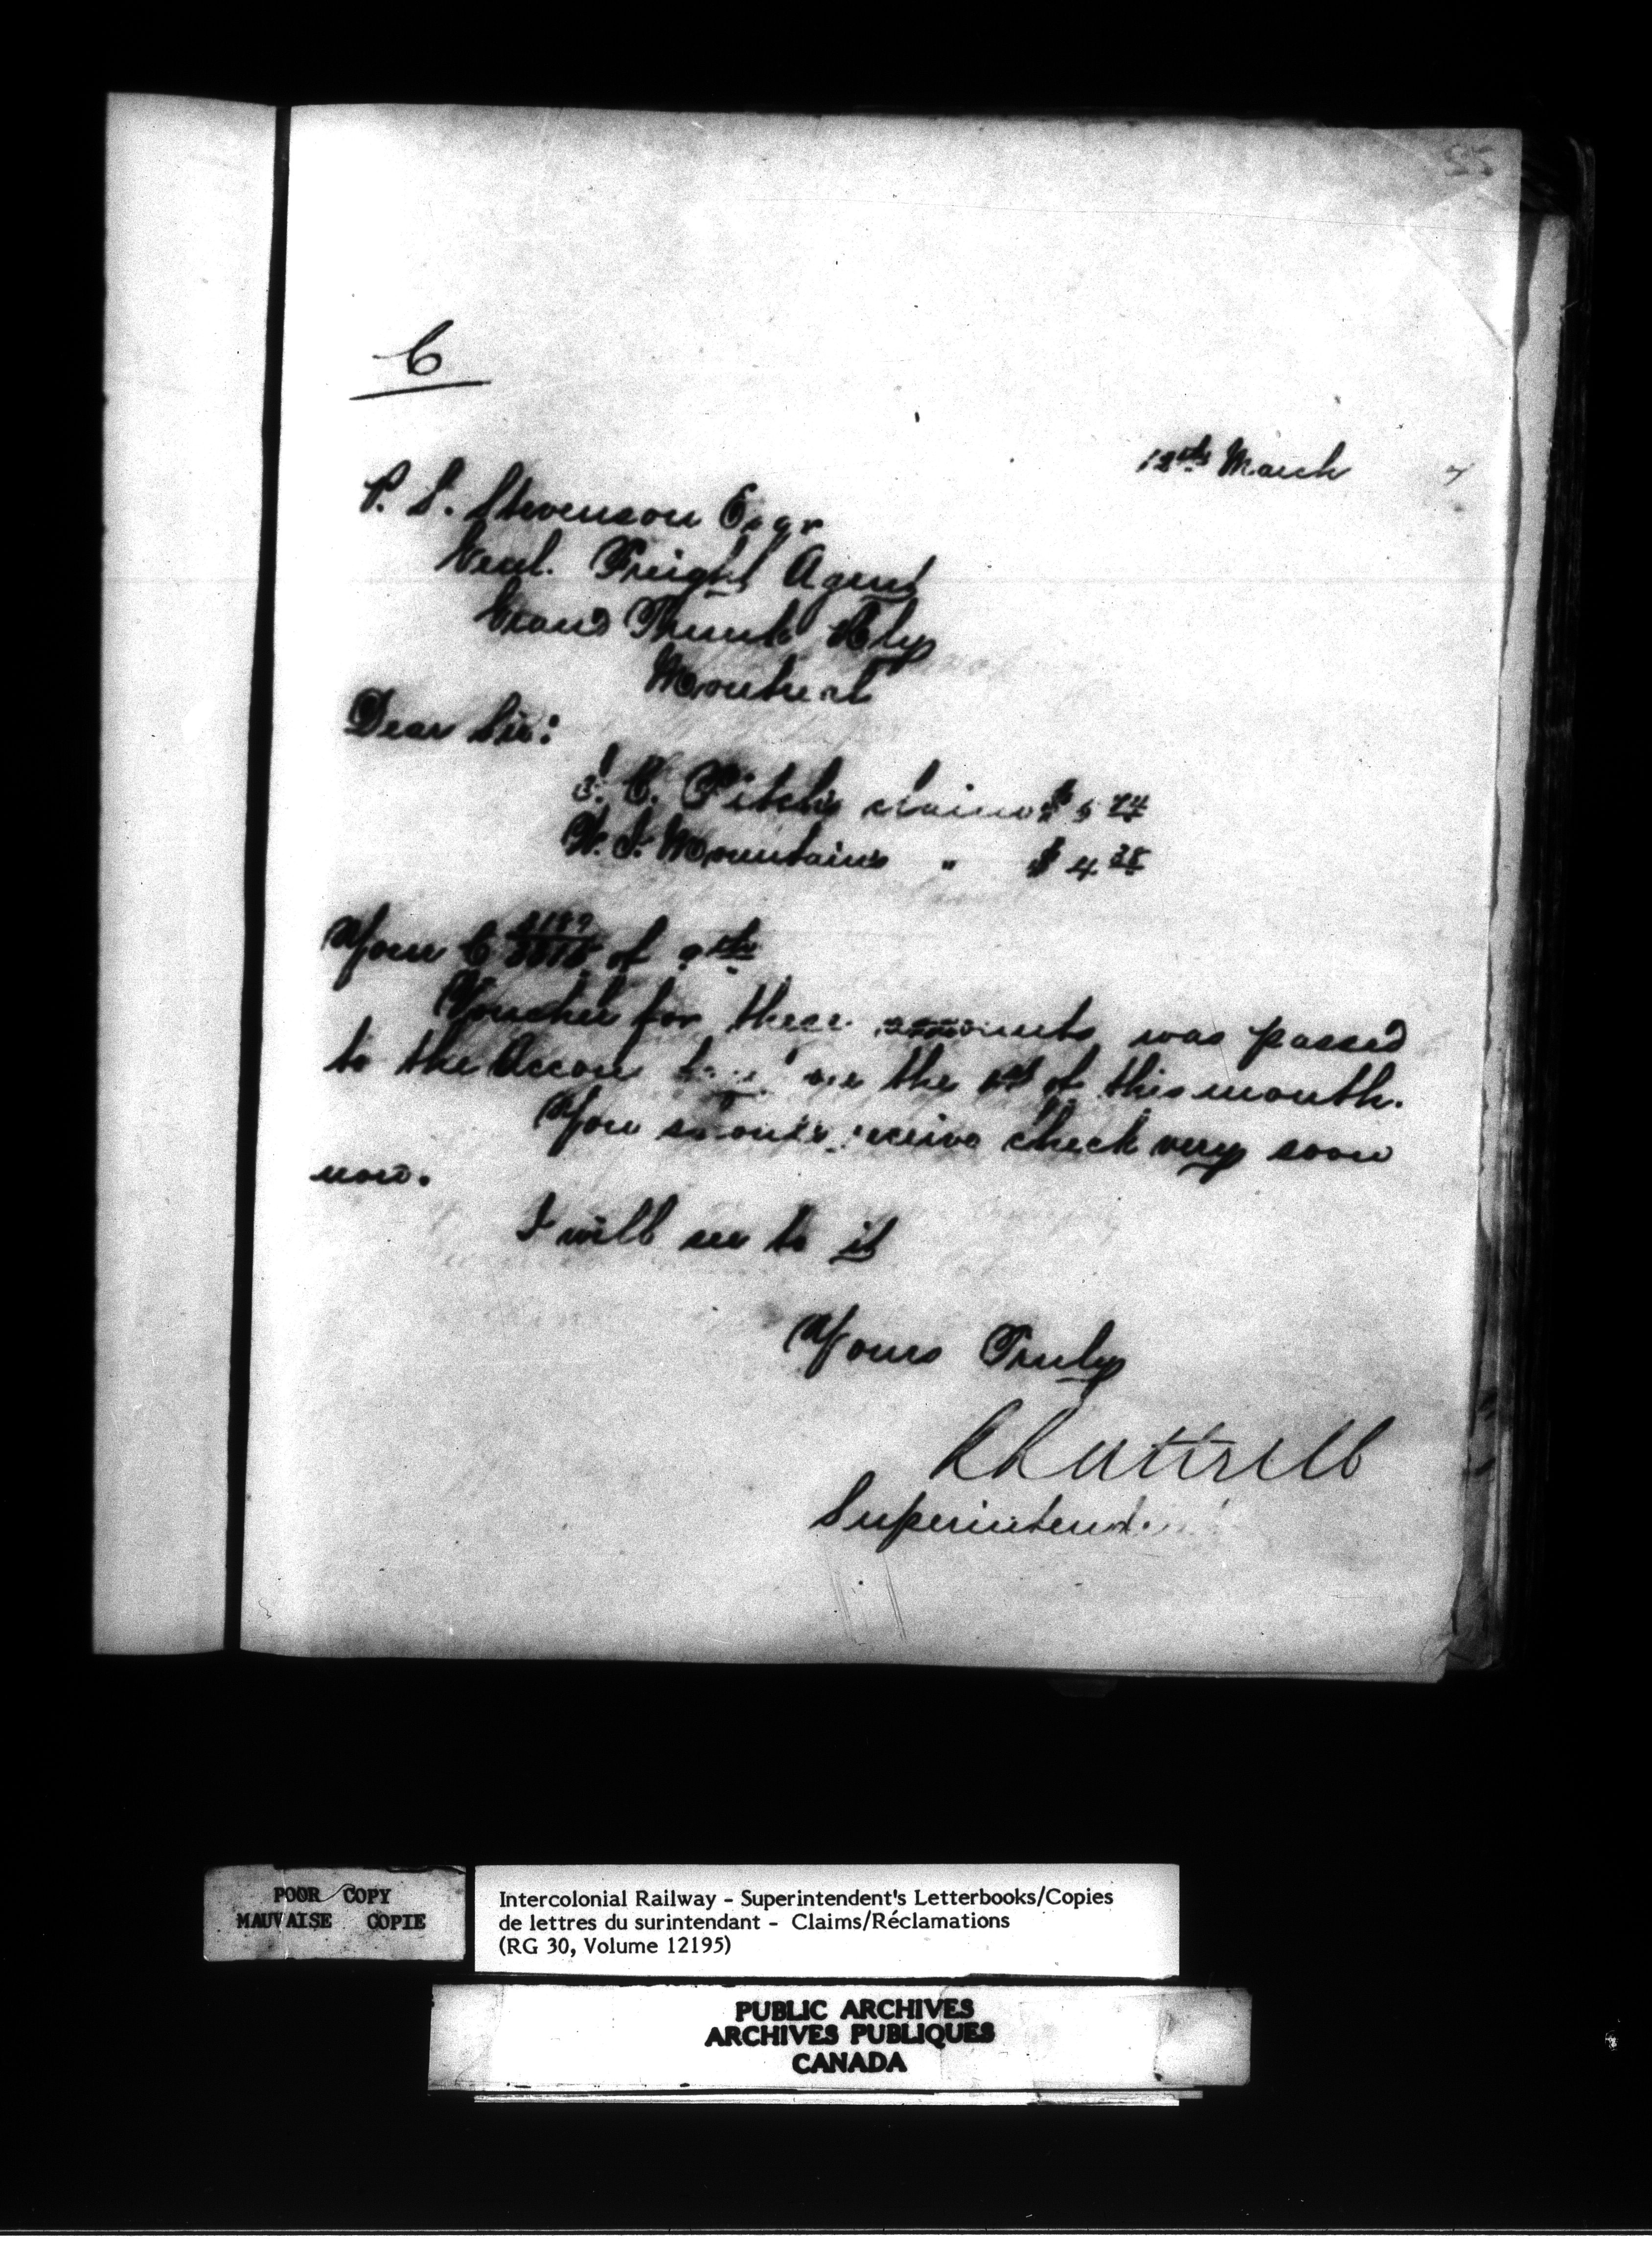 55
C
12th March 7
P. S. Stevenson Esqr
Genl. Freight Agent
Grand Trunk Rly
Montreal
Dear Sir:
C. Fitch's claim $ 5 24
W. S. Mountain's " $ 4 25
Your C of 9th
Voucher for these amounts was passed
to the on the of this month.
You should receive check very soon
now.
I will see to it
Yours Truly
Superintend
POOR COPY
MAUVAISE COPIE
Intercolonial Railway - Superintendent's Letterbooks/Copies
de lettres du surintendant - Claims/Réclamations
(RG 30, Volume 12195)
PUBLIC ARCHIVES
ARCHIVES PUBLIQUES
CANADA